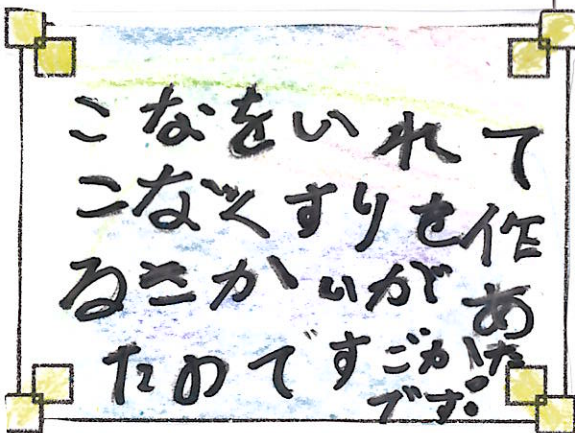 こなをいれて
こなぐすりを作
るきかいがあ
たのですごかた
です!